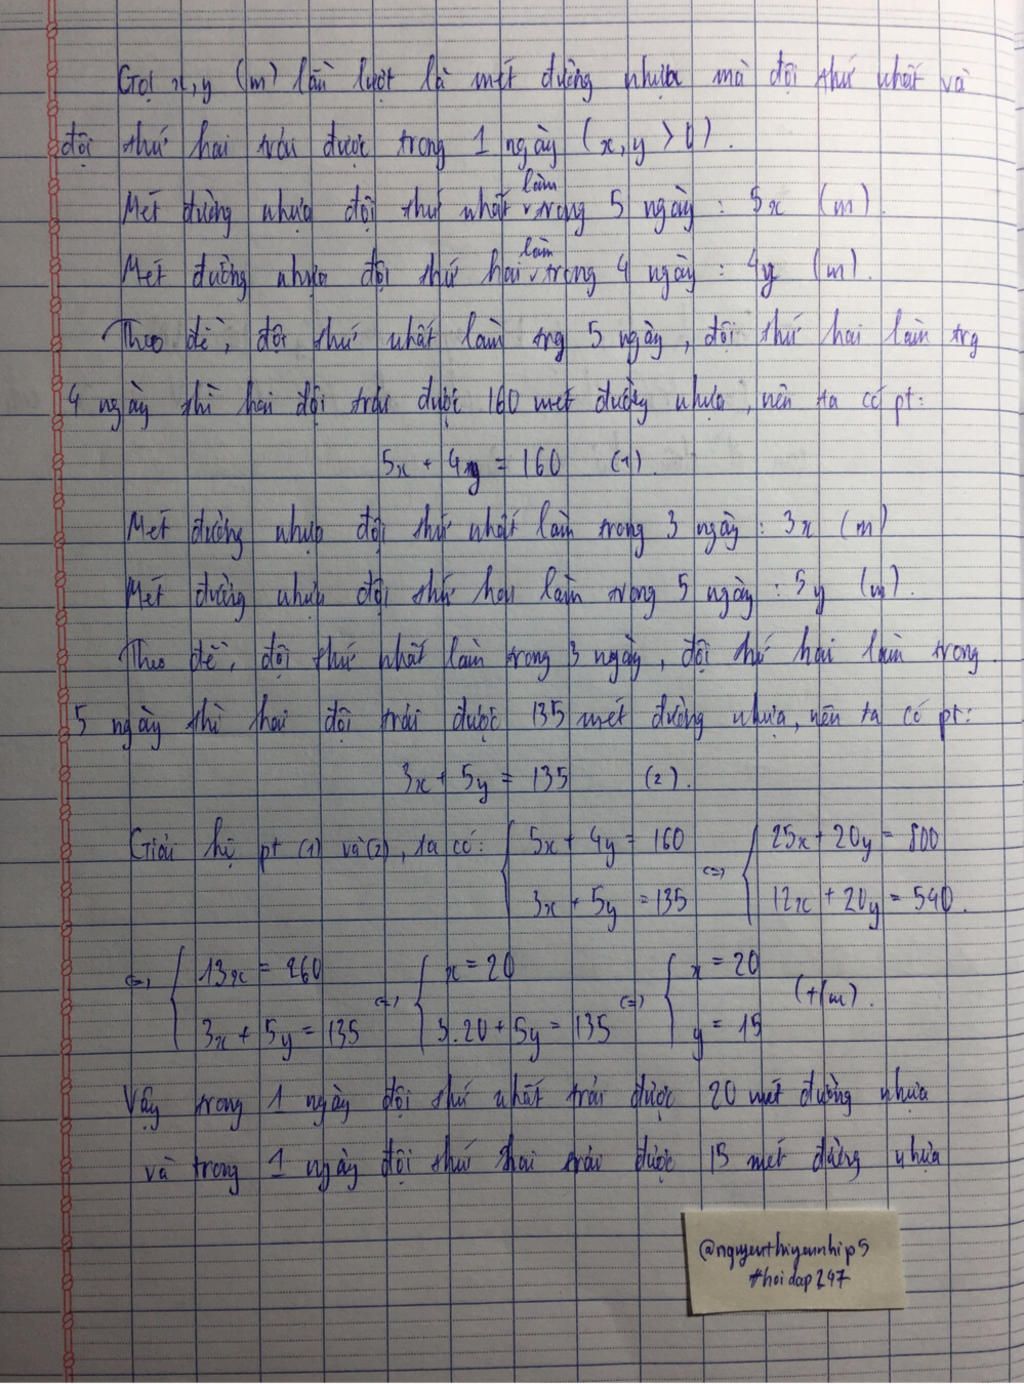 Gọi x, y (m) lần lượt là mét đường nhựa mà đội thứ nhất và
đội thứ hai trải được trong 1 ngày (x, y > 0).
Mét đường nhựa đội thứ nhất làm trong 5 ngày : 5x (m).
Mét đường nhựa đội thứ hai làm trong 4 ngày : 4y (m).
Theo đề, đội thứ nhất làm trg 5 ngày, đội thứ hai làm trg
4 ngày thì hai đội trải được 160 mét đường nhựa, nên ta có pt:
5x + 4y = 160 (1).
Mét đường nhựa đội thứ nhất làm trong 3 ngày : 3x (m)
Mét đường nhựa đội thứ hai làm trong 5 ngày : 5y (m).
Theo đề, đội thứ nhất làm trong 3 ngày, đội thứ hai làm trong
5 ngày thì hai đội trải được 135 mét đường nhựa, nên ta có pt:
3x + 5y = 135 (2).
Giải hệ pt (1) và (2), ta có: { 5x + 4y = 160 <=> { 25x + 20y = 800
3x + 5y = 135 12x + 20y = 540.
<=> { 13x = 260 <=> { x = 20 <=> { x = 20 (t/m).
3x + 5y = 135 3.20 + 5y = 135 y = 15
Vậy trong 1 ngày đội thứ nhất trải được 20 mét đường nhựa
và trong 1 ngày đội thứ hai trải được 15 mét đường nhựa
@nguyenthiyennhip5
#hoidap247